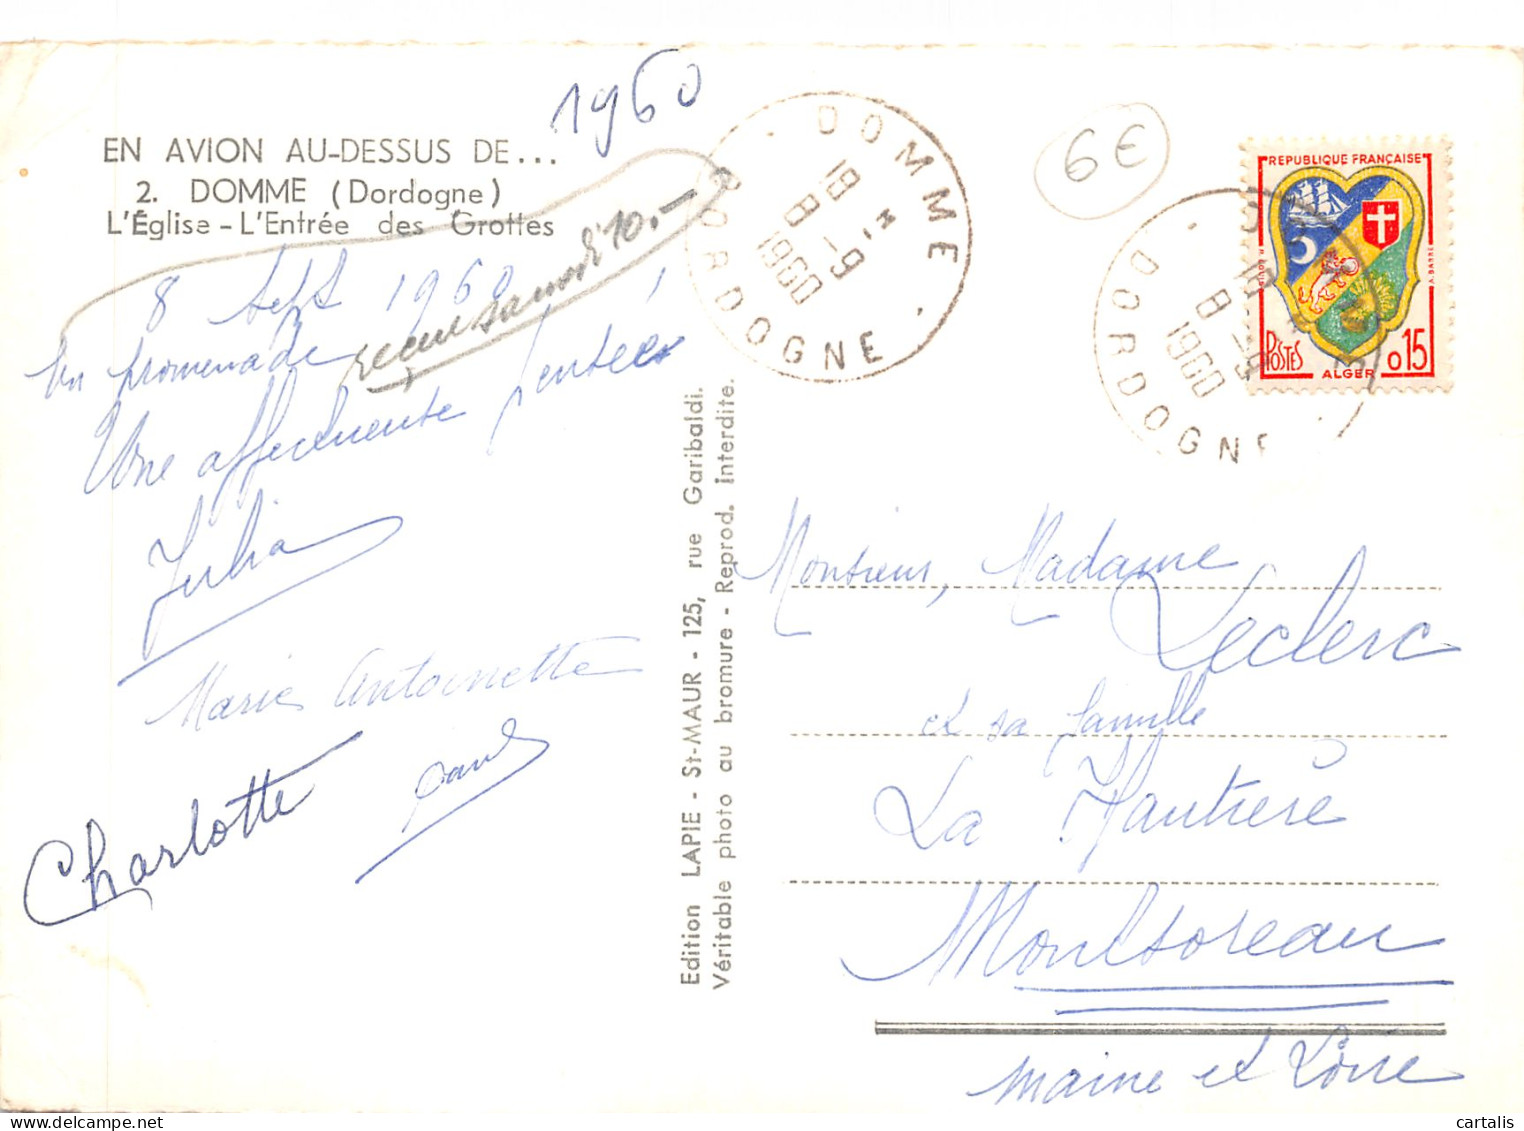 1960
EN AVION AU-DESSUS DE...
2. DOMME (Dordogne)
L'Église - L'Entrée des Grottes
8 sept 1960
reçue samedi 10.-
En promenade
Une affectueuse pensée
Julia
Marie Antoinette
Paul
Charlotte
Edition LAPIE - St-MAUR - 125, rue Garibaldi.
Véritable photo au bromure - Reprod. Interdite.
DOMME
18 H
8 - 9
1960
DORDOGNE
6€
REPUBLIQUE FRANÇAISE
POSTES
ALGER
0,15
DORDOGNE
Monsieur, Madame
Leclerc
et sa famille
La Hautière
Montsoreau
Maine et Loire
cartalis delcampe.net